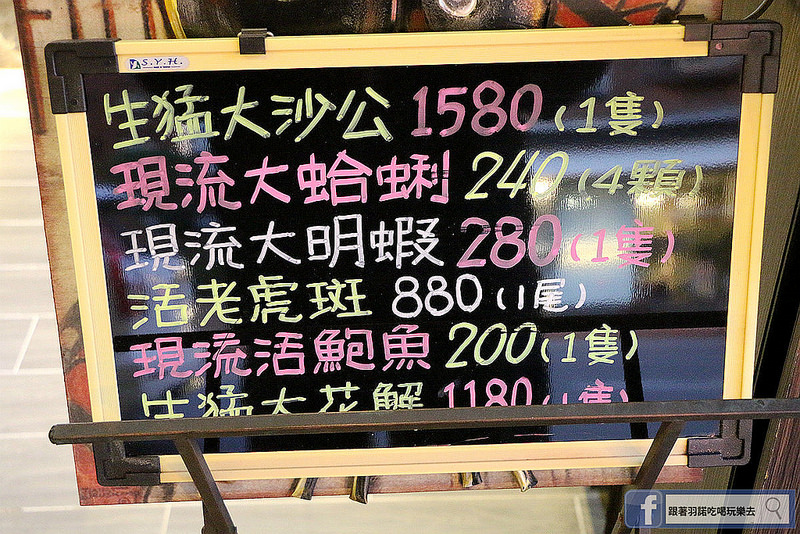 S.Y.H.
生猛大沙公 1580 (1隻)
現流大蛤蜊 240 (4顆)
現流大明蝦 280 (1隻)
活老虎斑 880 (1尾)
現流活鮑魚 200 (1隻)
生猛大花蟹 1180 (1隻)
f 跟著羽諾吃喝玩樂去